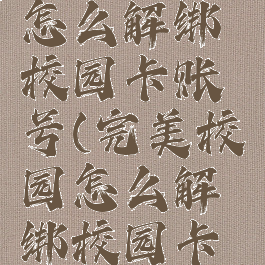 怎么解绑
校园卡账
号(完美校
园怎么解
绑校园卡